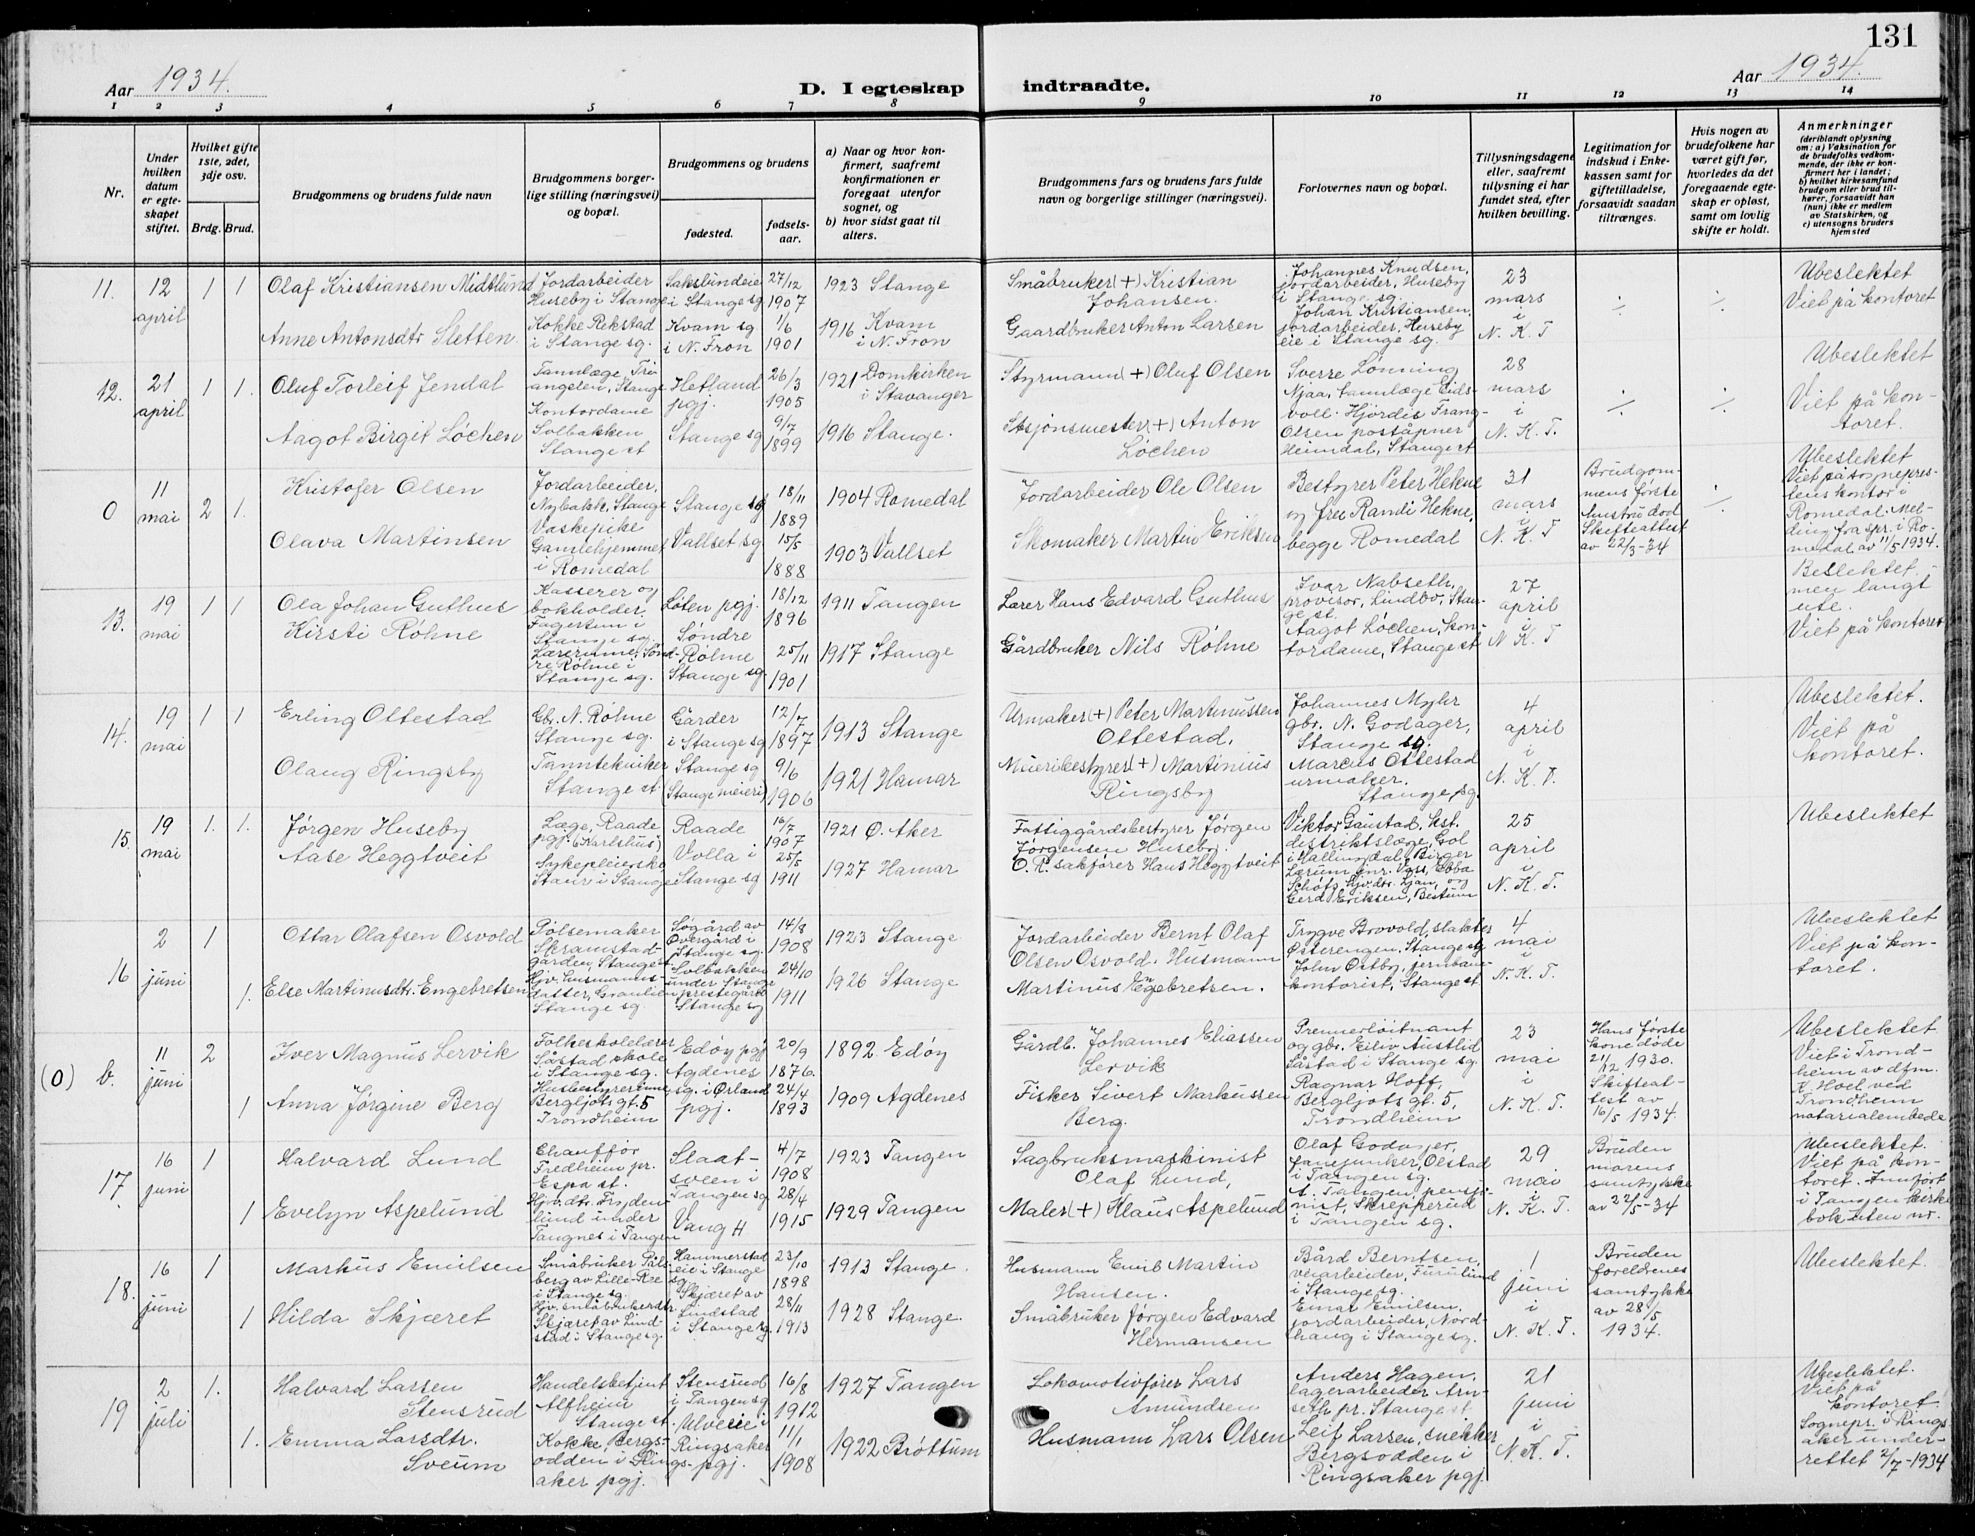 131
Aar 1934.
D. I egteskap indtraadte.
Aar 1934.
1 2 3 4 5 6 7 8 9 10 11 12 13 14
Nr.
Under hvilken datum er egteskapet stiftet.
Hvilket gifte 1ste, 2det, 3dje osv.
Brdg. Brud.
Brudgommens og brudens fulde navn
Brudgommens borgerlige stilling (næringsvei) og bopæl.
Brudgommens og brudens
fødested.
fødselsaar.
a) Naar og hvor konfirmert, saafremt konfirmationen er foregaat utenfor sognet, og
b) hvor sidst gaat til alters.
Brudgommens fars og brudens fars fulde navn og borgerlige stillinger (næringsvei).
Forlovernes navn og bopæl.
Tillysningsdagene eller, saafremt tillysning ei har fundet sted, efter hvilken bevilling.
Legitimation for indskud i Enkekassen samt for giftetilladelse, forsaavidt saadan tiltrænges.
Hvis nogen av brudefolkene har været gift før, hvorledes da det foregaaende egteskap er opløst, samt om lovlig skifte er holdt.
Anmerkninger
(deriblandt oplysning om: a) Vaksination for de brudefolks vedkommende, der ikke er konfirmert her i landet; b) hvilket kirkesamfund brudgom eller brud tilhører, forsaavidt han (hun) ikke er medlem av Statskirken, og c) utensogns bruders hjemsted
11. 12 april 1 1
Olaf Kristiansen Midtlund
Jordarbeider Huseby i Stange
Sakslundeie i Stange sg
27/12 1907
1923 Stange
Småbruker (+) Kristian Johansen.
Johannes Knudsen, jordarbeider, Huseby i Stange sg.
Johan Kristiansen, jordarbeider, Huseby eie i Stange sg.
23 mars i N. K. T
Ubeslektet
Viet på kontoret
Anne Antonsdtr Sletten.
Kokke Rekstad i Stange sg.
Kvam sg. i N. Fron
1/6 1901
1916 Kvam i N. Fron
Gaardbruker Anton Larsen
12. 21 april 1 1.
Oluf Torleif Jendal
Tannlæge, Triangelen, Stange
Hetland pgj.
26/3 1905
1921 Domkirken i Stavanger
Styrmann (+) Oluf Olsen
Sverre Lønning Njaa, tannlæge Eidsvoll. Hjørdis Frang-Olsen poståpner Heimdal, Stange st
28 mars i N. K. T.
Ubeslektet
Viet på kontoret.
Aagot Birgit Løchen
Kontordame Solbakken Stange st
Stange sg
9/7 1899
1916 Stange.
Stasjonsmester (+) Anton Løchen
0 11 mai 2 1.
Kristofer Olsen
Jordarbeider, Nybakk, Stange
Stange sg
18/11 1889
1904 Romedal
Jordarbeider Ole Olsen
Bestyrer Peter Hekne og frue Randi Hekne, begge Romedal
31 mars i N. K. T
Brudgommens første hustru død Skifteattest av 22/3-34
Ubeslektet
Viet på sogneprestens kontor i Romedal. Melding fra spr. i Romedal av 11/5 1934.
Olava Martinsen
Vaskepike Gamlehjemmet i Romedal
Vallset sg.
15/5 1888
1903 Vallset
Skomaker Martin Eriksen
13. 19 mai 1 1
Ola Johan Guthus
Kasserer og bokholder Fagertun i Stange sg.
Løten pgj.
18/12 1896
1911 Tangen
Lærer Hans Edvard Guthus
Ivar Nabseth, provisor, Lindbo, Stange st.
Aagot Løchen, kontordame, Stange st
27 april i N. K. T
Beslektet men langt ute.
Viet på kontoret
Kirsti Røhne
Lærerinne, Søndre Røhne i Stange sg.
Søndre Røhne Stange sg.
25/11 1901
1917 Stange
Gårdbruker Nils Røhne
14. 19 mai 1 1
Erling Ottestad
Gbr. N. Røhne Stange sg.
Gårder i Stange sg
12/7 1897
1913 Stange
Urmaker (+) Peter Martinussen Ottestad.
Johannes Myhr gbr. N. Godager, Stange sg.
Marcus Ottestad urmaker. Stange sg.
4 april i N. K. T.
Ubeslektet.
Viet på kontoret.
Olaug Ringsby
Tanntekniker Stange st
Stange sg (Stange meieri)
9/6 1906
1921 Hamar
Meieribestyrer (+) Martinius Ringsby
15. 19 mai 1. 1.
Jørgen Huseby
Læge, Raade pgj. (Karlshus)
Raade
16/7 1907
1921 Ø. Aker
Fattiggårdsbestyrer Jørgen Jørgensen Huseby.
Viktor Gaustad, kst. distriktslæge, Gol i Hallingdal, Birger
Gerd Eriksen, Bestum
25 april i N. K. T.
Ubeslektet
Aase Heggtveit
Sykepleierske Staur i Stange
Volla i Stange sg
25/5 1911
1927 Hamar
O. R. sakfører Hans Heggtveit
16 2 juni 1
Ottar Olafsen Osvold
Pølsemaker Skramstadgården, Stange st
Søgård av Øvergård i Stange sg.
14/8 1908
1923 Stange
Jordarbeider Bernt Olaf Olsen Osvold.
Trygve Brovold, slakter Østerengen, Stange sg
John Østby, jernbankontorist, Stange st
4 mai i N. K. T.
Ubeslektet
Viet på kontoret.
1.
Else Martinusdtr. Engebretsen
Hjv. husmannsdatter, Granlien Stange sg.
Solbakken under Stange prestegård Stange sg
24/10 1911
1926 Stange
Husmann Martinus Engebretsen.
(0) b. 11 juni 2
Iver Magnus Lervik
Folkeskolelærer Såstad skole i Stange sg.
Edøy pgj
20/9 1876.
1892. Edøy
Gårdb. Johannes Eliassen Lervik
Premierløitnant og gbr. Eiliv Austlid Såstad i Stange sg.
Ragnar Hoff, Bergljots gt. 5, Trondheim
23 mai i N. K. T.
Hans første kone døde 21/12 1930. Skifteattest av 16/5 1934.
Ubeslektet
Viet i Trondheim av dfm. K. Hoel ved Trondheim notarialembede
1
Anna Jørgine Berg
Husbestyrerinne Bergljots gt. 5 Trondheim
Agdenes sg. i Ørland pgj.
24/4 1893
1909 Agdenes
Fisker Sivert Markussen Berg.
17. 16 juni 1
Halvard Lund
Chauffør Fredheim pr. Espa st.
Slaatsveen i Tangen sg
4/7 1908
1923 Tangen
Sagbruksmaskinist Olaf Lund,
Olaf Godager, fanejunker, Olstad i Tangen sg.
A. Tangen, pensjonist, Skrepperud i Tangen sg.
29 mai i N. K. T.
Bruden morens samtykke av 22/5-34
Ubeslektet.
Viet på kontoret. Innført i Tangen kirkebok uten nr.
1
Evelyn Aspelund
Hjv. dtr. Frydenlund under Tangnes i Tangen
Vang H
28/4 1915
1929 Tangen
Maler (+) Klaus Aspelund
18. 16 juni 1
Markus Emilsen
Småbruker Pålsberg av Lille-Ree i Stange sg.
Hammerstad eie i Stange sg
23/10 1898
1913 Stange.
Husmann Emil Martin Hansen.
Bård Berntsen, veiarbeider, Furulund i Stange sg.
Einar Emilsen, jordarbeider, Nordhaug i Stange sg.
1 juni i N. K. T.
Bruden foreldrenes samtykke av 28/5 1934.
Ubeslektet.
1
Hilda Skjæret
Hjv. småbrukerdtr Skjæret av Lindstad i Stange sg.
Skjæret av Lindstad i Stange sg.
28/11 1913
1928 Stange.
Småbruker Jørgen Edvard Hermansen
19 2 juli 1.
Halvard Larsen Stensrud
Handelsbetjent Alfheim Stange st.
Stensrud i Tangen sg
16/8 1912
1927 Tangen
Lokomotivfører Lars Amundsen
Anders Hagen, lagerarbeider Arnseth pr. Stange st
Leif Larsen, snekker Bergsodden i Ringsaker pgj.
21 juni i N. K. T.
Ubeslektet.
Viet på kontoret
Sognepr. i Ringsaker underrettet 2/7-1934
1.
Emma Larsdtr. Sveum
Kokke, Bergsodden i Ringsaker pgj.
Ulveeie i Ringsaker pgj.
11/1 1908
1922 Brøttum
Husmann Lars Olsen